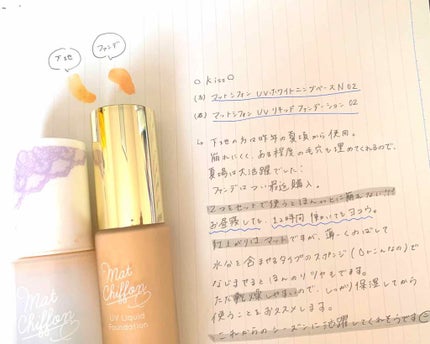 下地
ファンデ
○ KissO
(左) マットシフォン UVホワイトニングベースN 02
(右) マットシフォン UVリキッドファンデーション 02
↳ 下地の方は昨年の夏頃から使用。
崩れにくく、ある程度の毛穴も埋めてくれるので、
夏場は大活躍でした!
ファンデはつい最近購入。
2つをセットで使うとほんっとに崩れない!!
お昼寝しても、12時間働いてもヨユウ。
仕上がりはマットですが、薄ーくのばして
水などを含ませるタイプのスポンジ(Dにこんなの)で
なじませるとほんのりツヤもでます。
ただ乾燥しやすいので、しっかり保湿してから
使うことをおススメします。
これからのシーズンに活躍してくれそうです
Mat
Chiffon
Mat
Chiffon
UV Liquid
Foundation